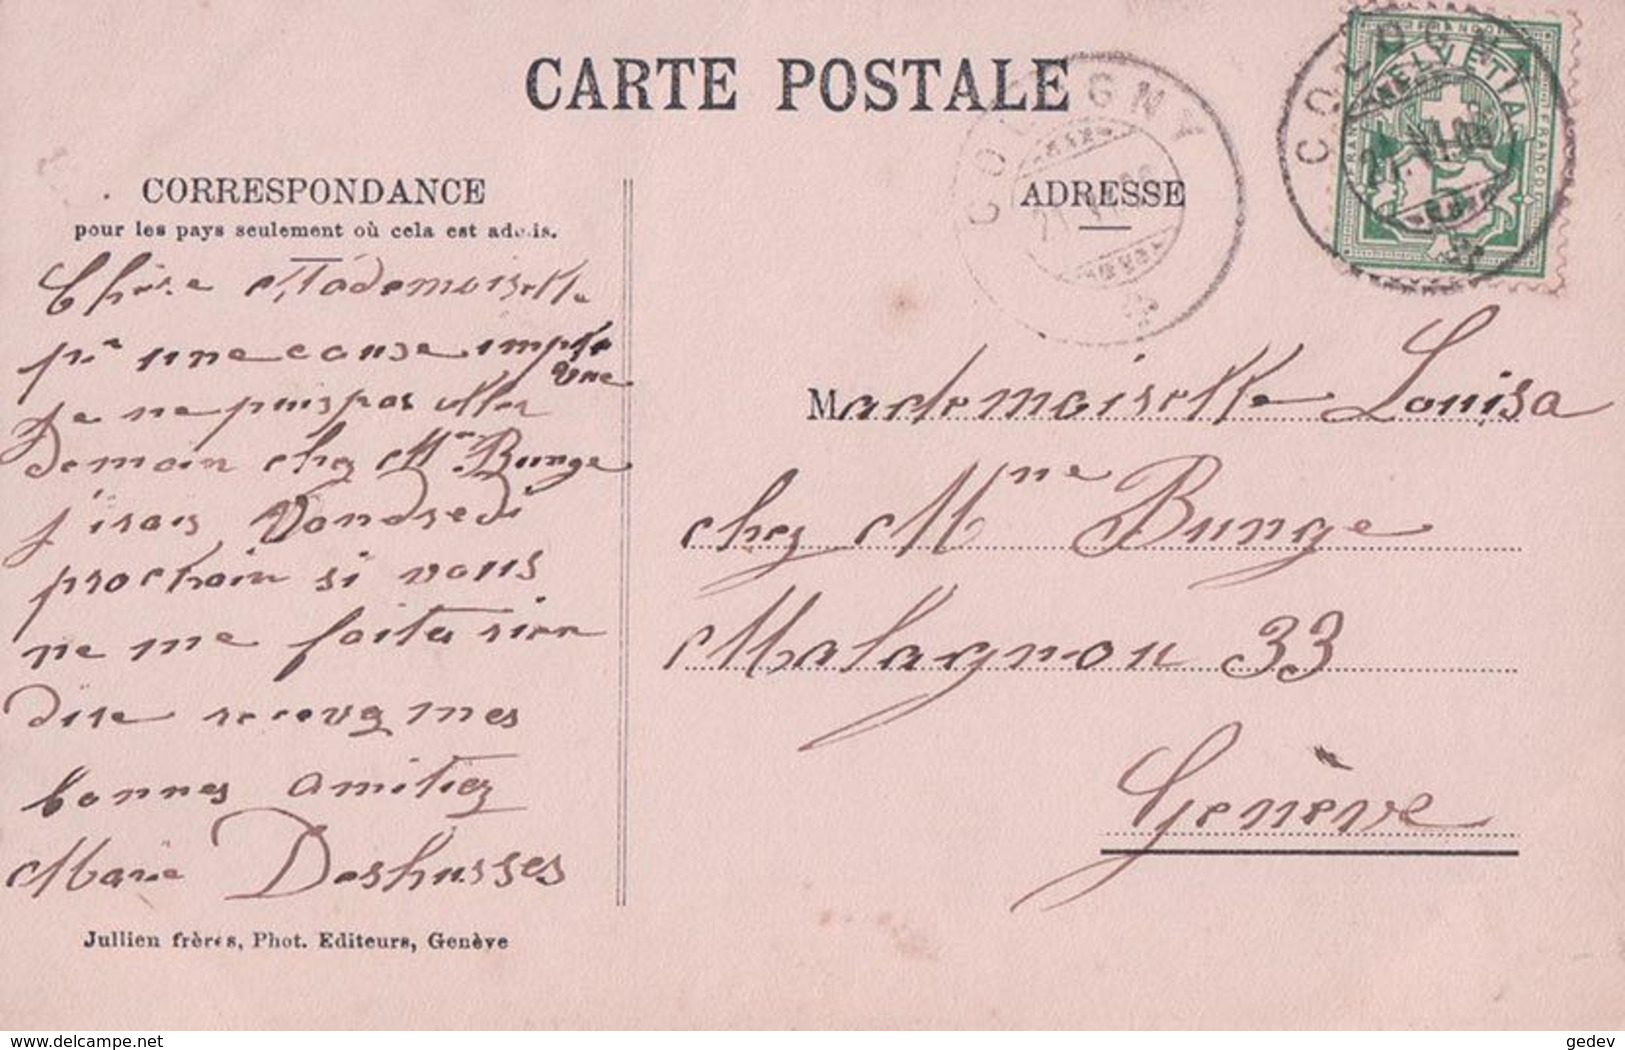 CARTE POSTALE
CORRESPONDANCE
pour les pays seulement où cela est admis.
Chère Mademoiselle
pr une cause imprévue
je ne puis pas aller
Demain chez Mme Bunge
j'irais Vendredi
prochain si vous
ne me faites rien
dire recevez mes
bonnes amitiez
Marie Deshusses
Jullien frères, Phot. Editeurs, Genève
ADRESSE
COLOGNY
COLOGNY
21.VI.06
HELVETIA
FRANCO
Mademoiselle Louisa
chez Mme Bunge
Malagnou 33
Genève
www.delcampe.net
gedev